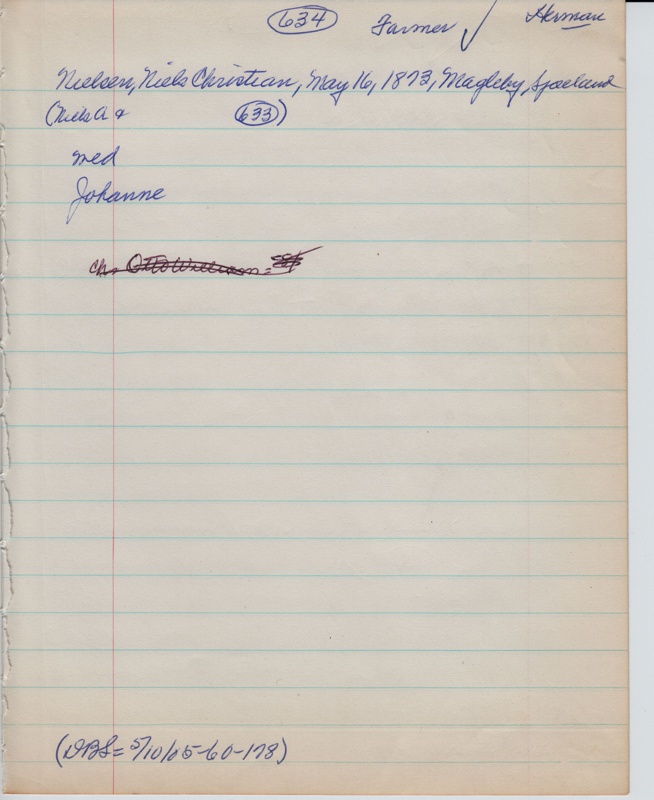 634 Farmer ✓ Herman
Nielsen, Niels Christian, May 16, 1873, Magleby, Sjaeland
(Niels A & 633)
med
Johanne
ch. Otto William =
(DBS = 5/10/05-60-178)